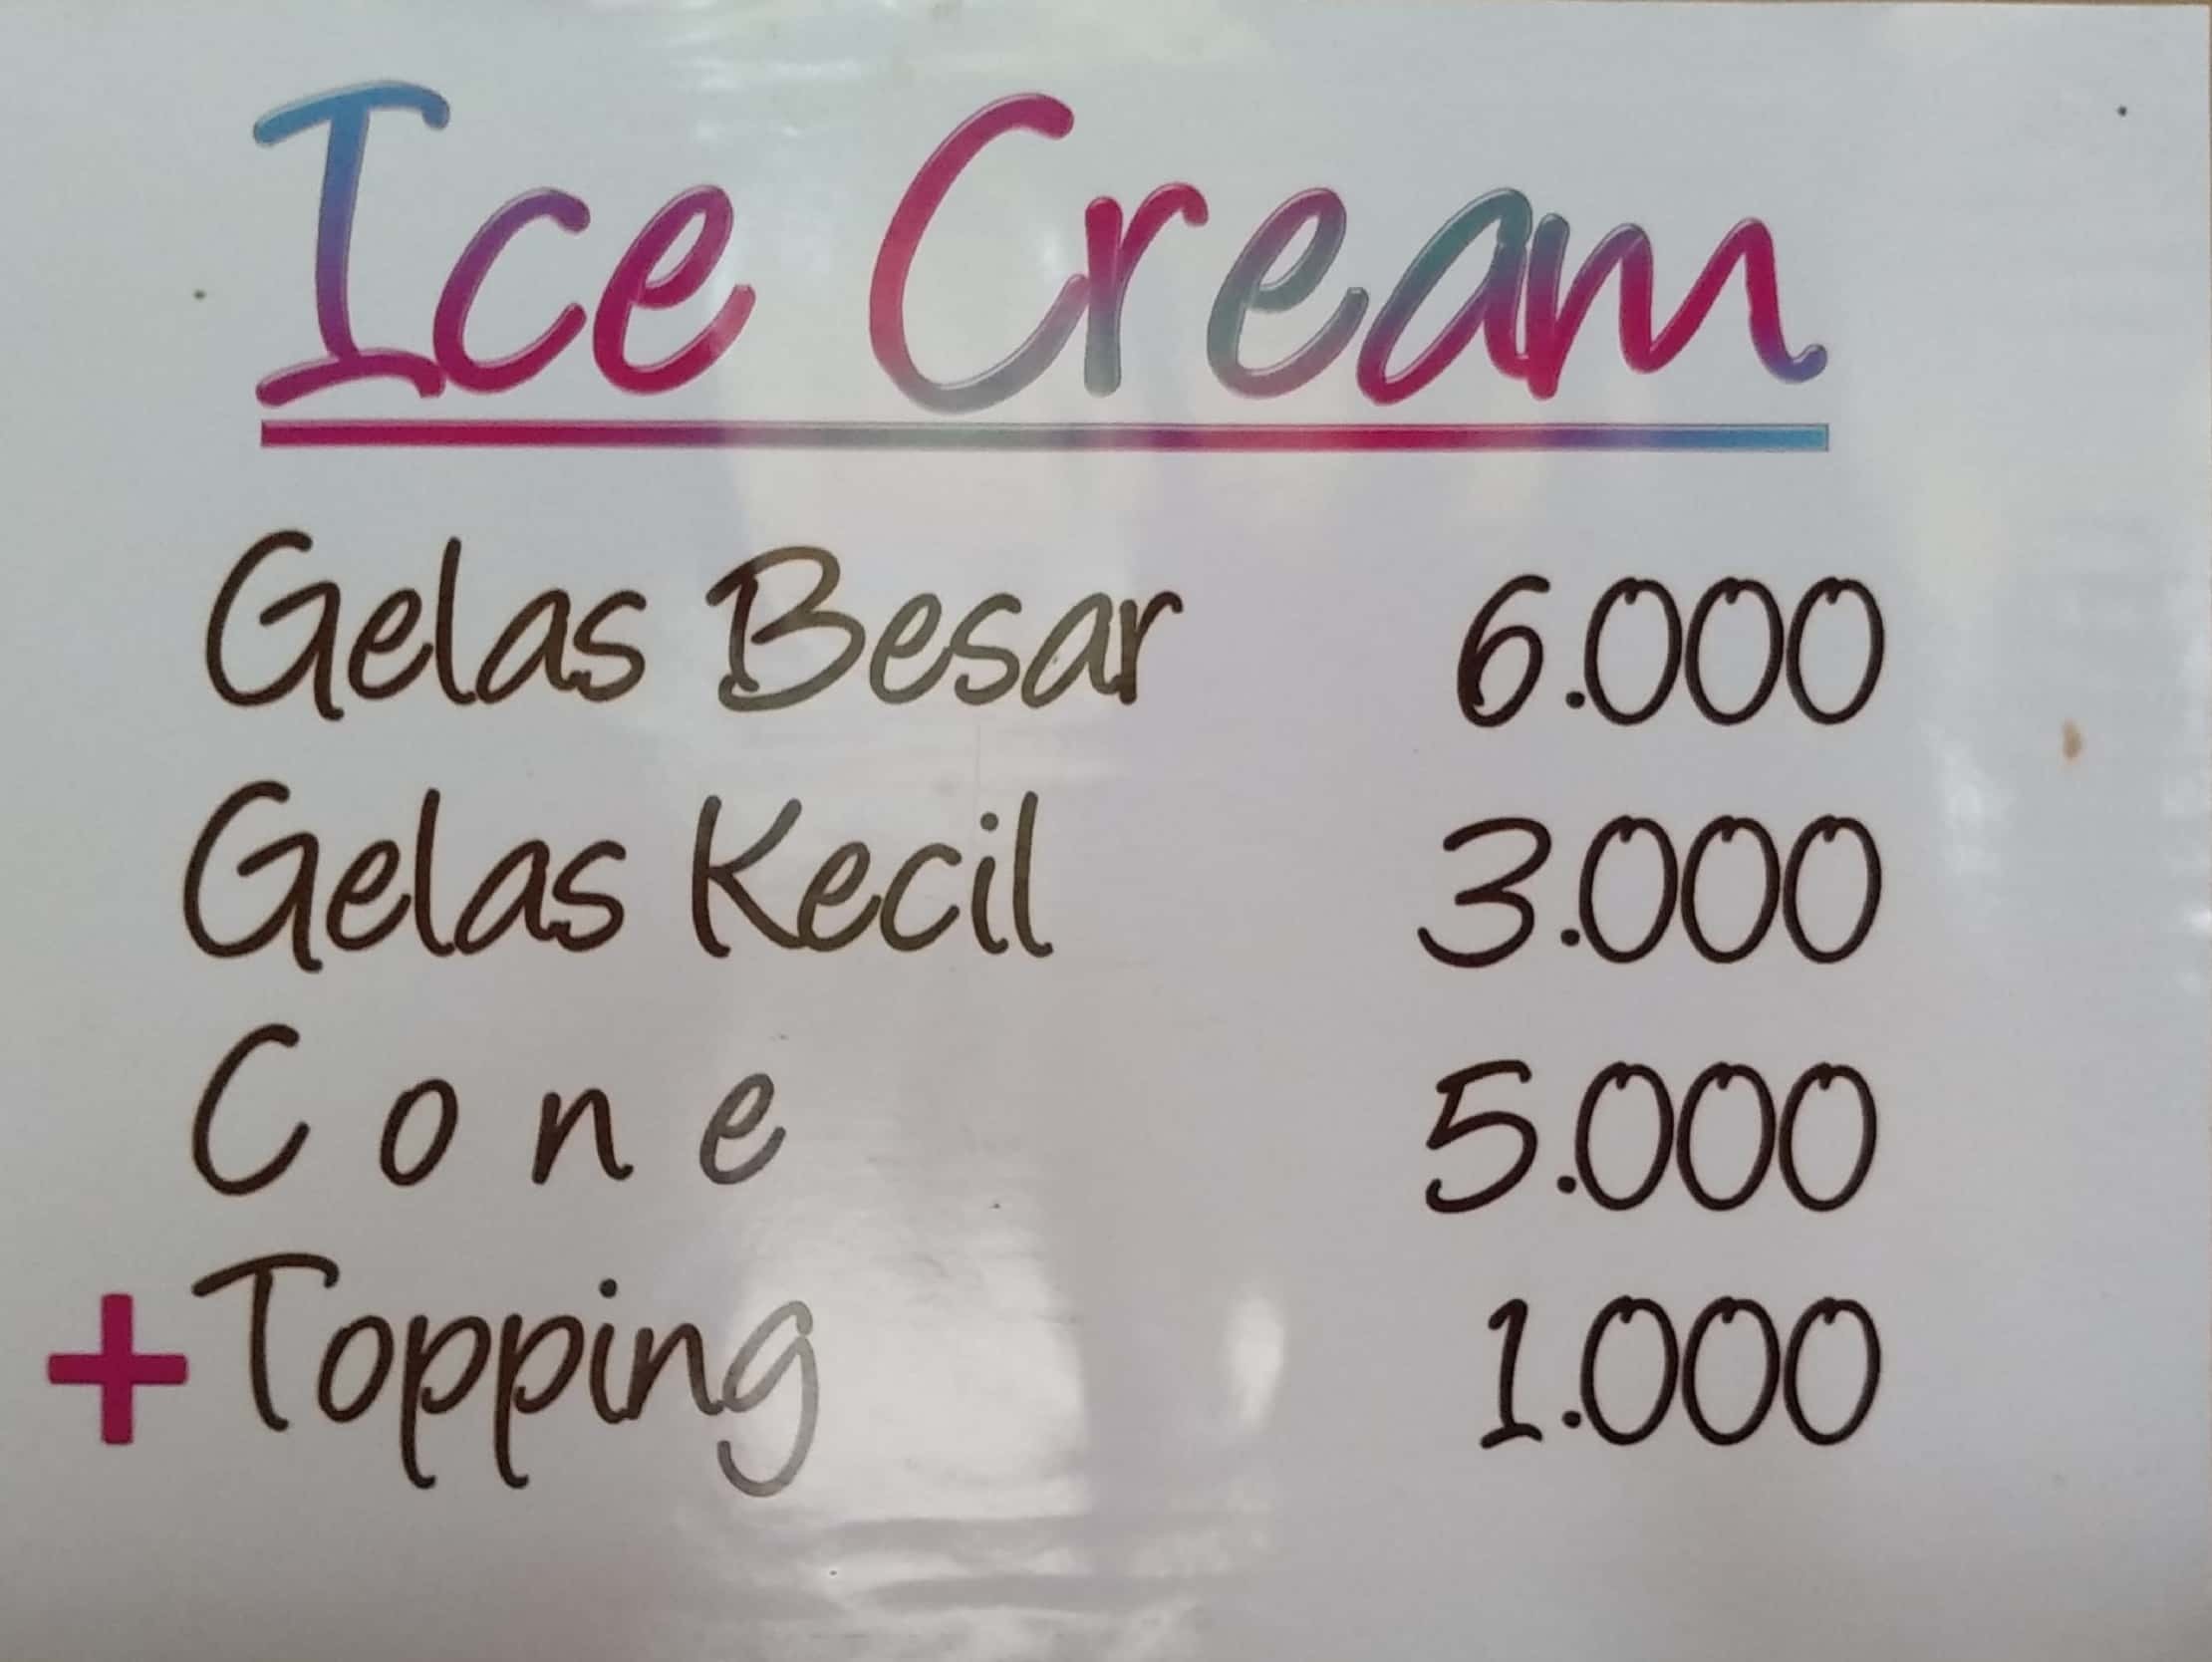 Ice Cream
Gelas Besar 6.000
Gelas Kecil 3.000
Cone 5.000
+Topping 1.000